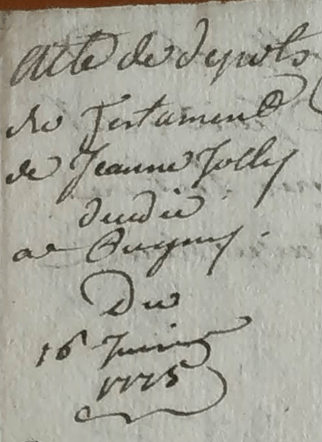 Acte de depots
du Testament
de Jeanne Jolly
a
Du
16 Juin
1775